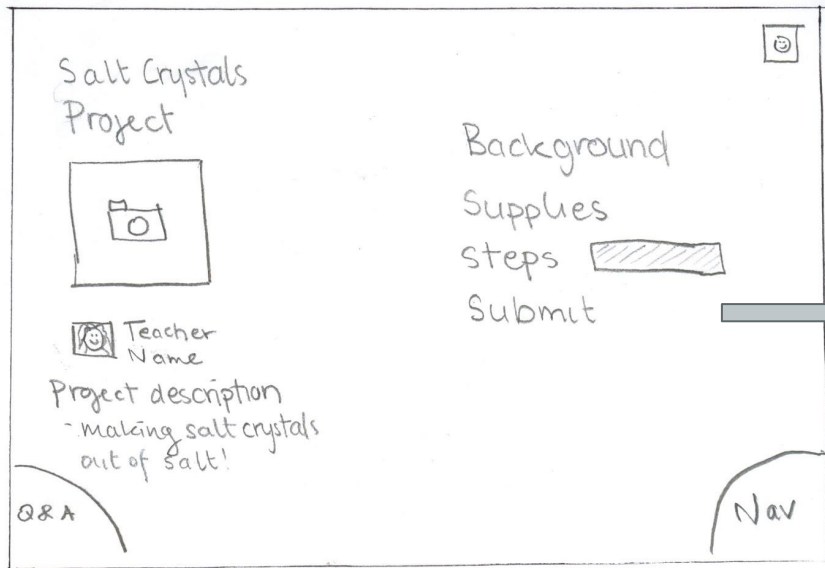 Salt Crystals
Project
Teacher
Name
Project description
- making salt crystals
out of salt!
Q & A
Background
Supplies
Steps
Submit
Nav